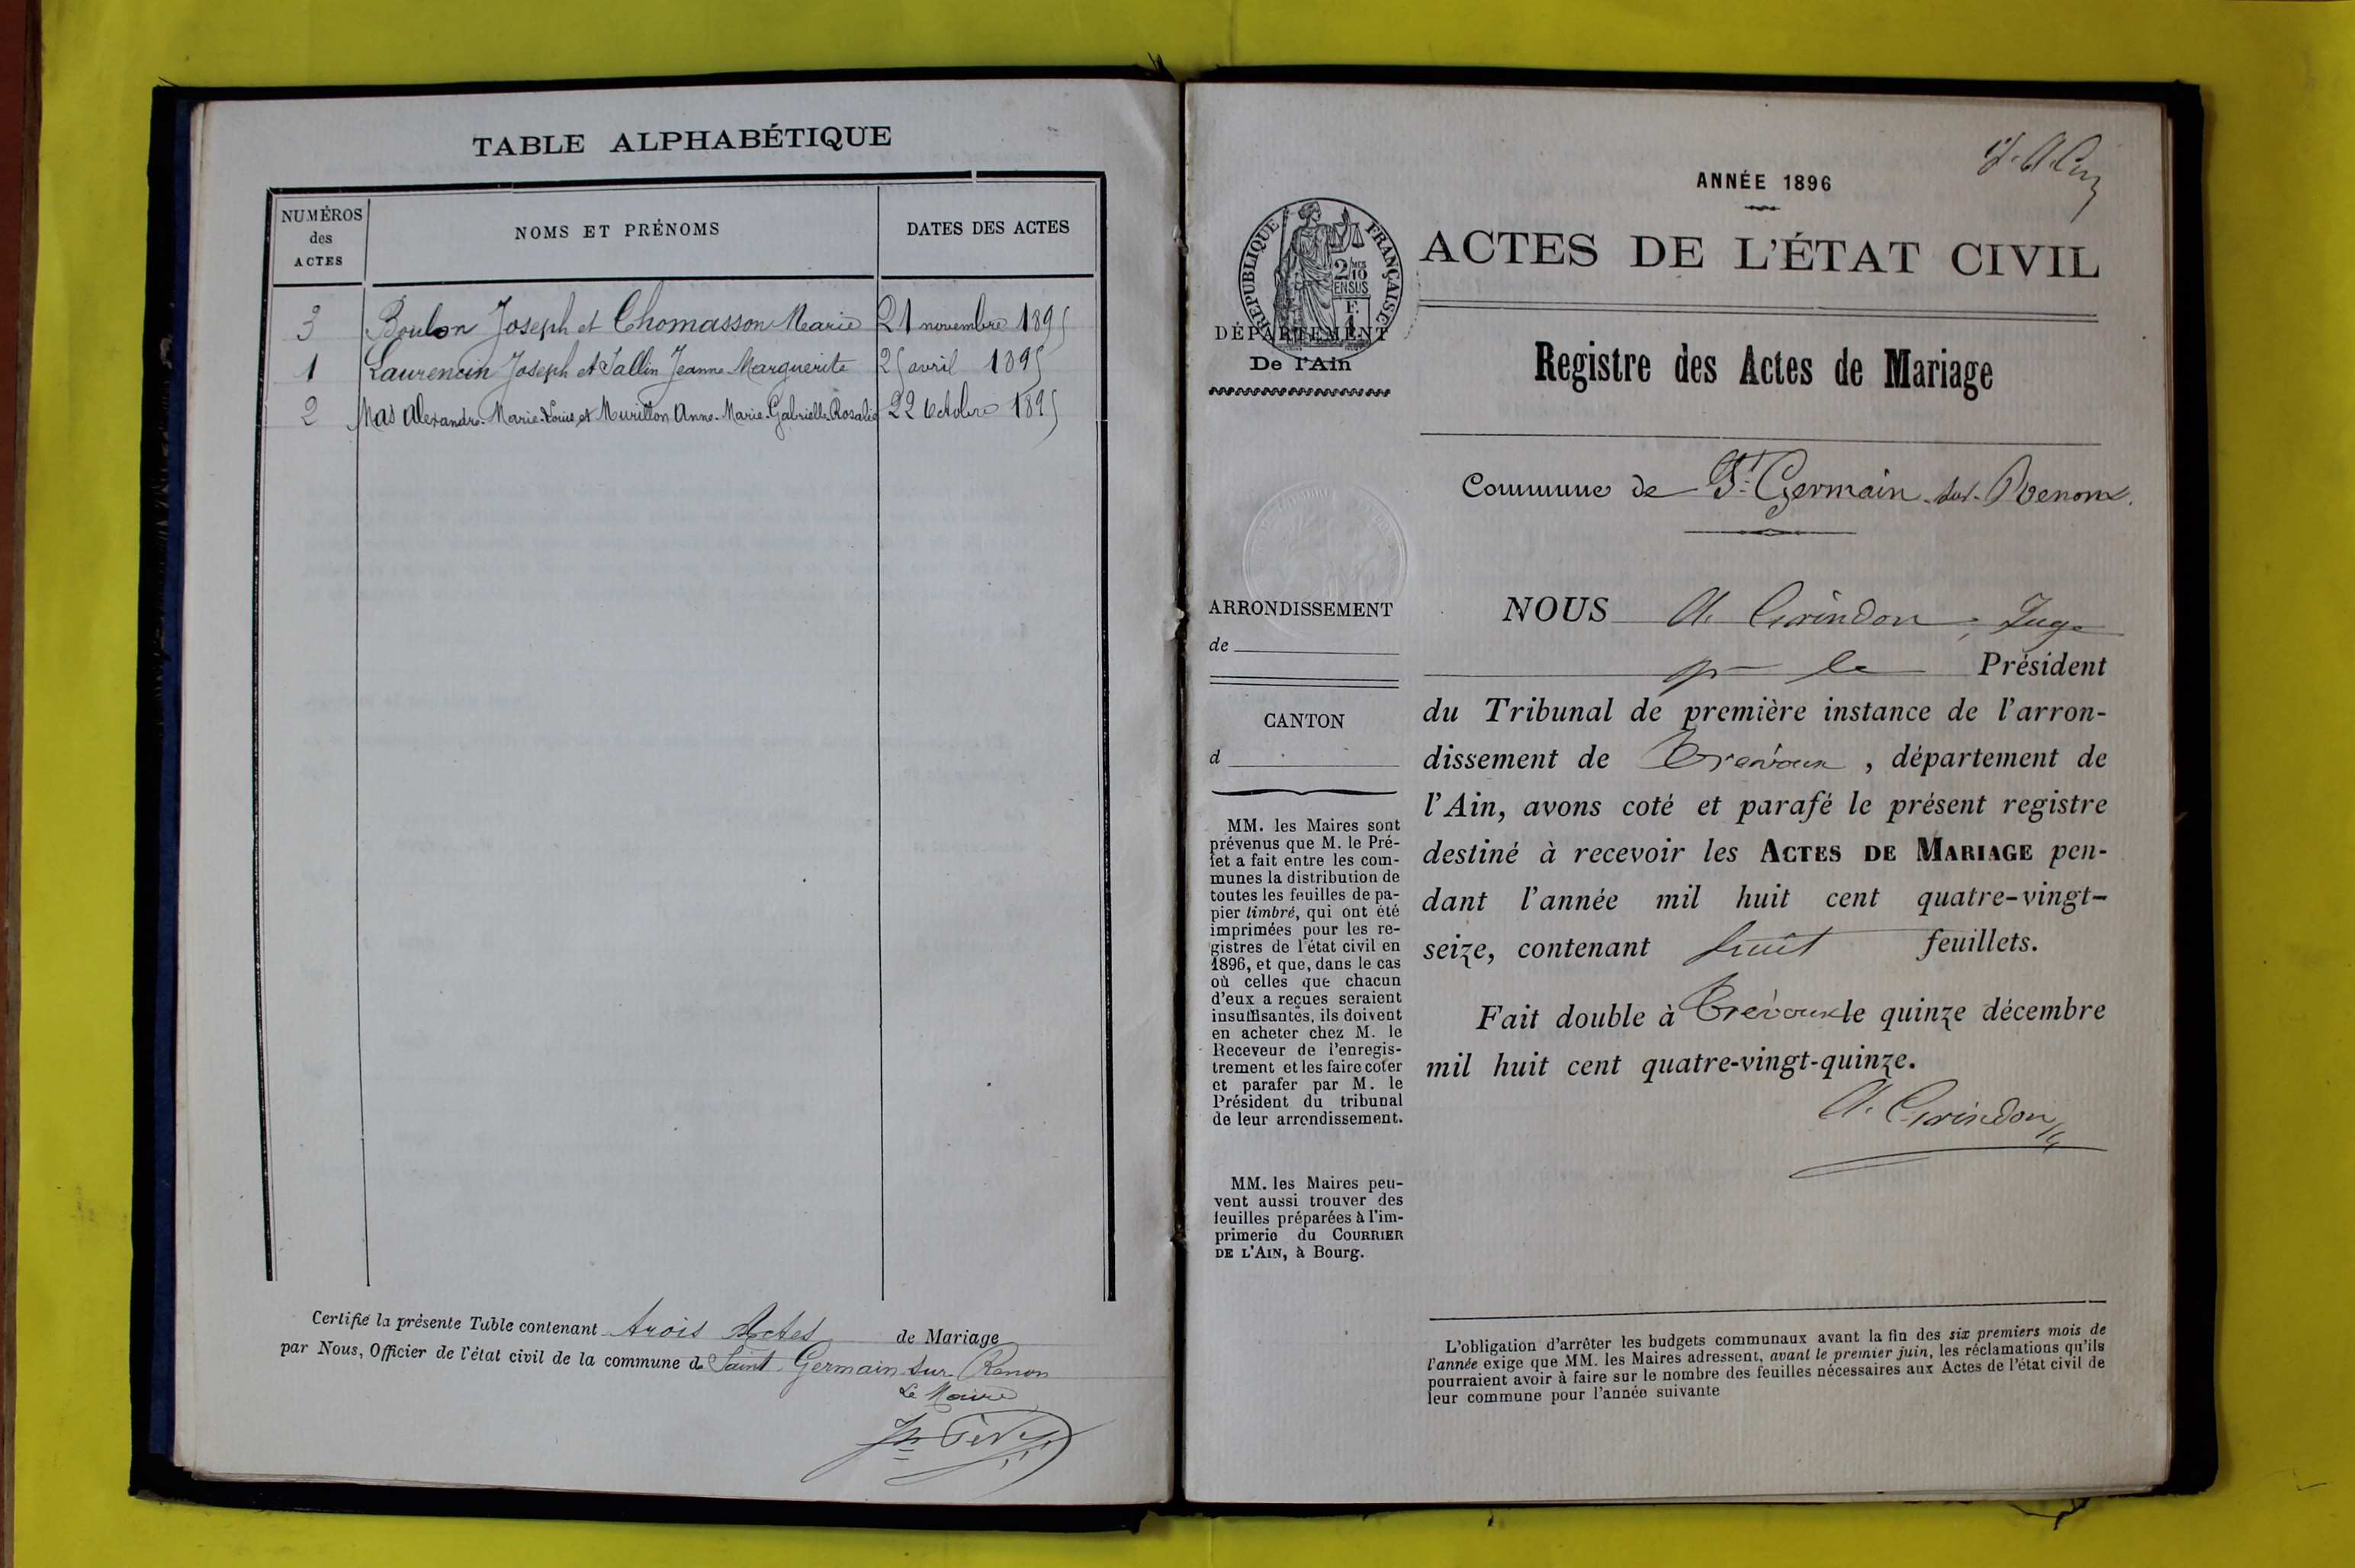 TABLE ALPHABÉTIQUE
NUMÉROS des ACTES
NOMS ET PRÉNOMS
DATES DES ACTES
3 Boulon Joseph et Thomasson Marie 21 novembre 1895
1 Laurencin Joseph et Sallin Jeanne Marguerite 25 avril 1895
2 Mas Alexandre-Marie-Louis et Murillon Anne-Marie-Gabrielle-Rosalie 22 octobre 1895
Certifié la présente Table contenant trois Actes de Mariage
par Nous, Officier de l'état civil de la commune de Saint Germain sur Renon
Le Maire
ANNÉE 1896
ACTES DE L'ÉTAT CIVIL
RÉPUBLIQUE FRANÇAISE
2/10 EN SUS
DÉPARTEMENT
De l'Ain
Registre des Actes de Mariage
Commune de St Germain sur Renon.
ARRONDISSEMENT
de
CANTON
d
MM. les Maires sont
prévenus que M. le Pré-
fet a fait entre les com-
munes la distribution de
toutes les feuilles de pa-
pier timbré, qui ont été
imprimées pour les re-
gistres de l'état civil en
1896, et que, dans le cas
où celles que chacun
d'eux a reçues seraient
insuffisantes, ils doivent
en acheter chez M. le
Receveur de l'enregis-
trement et les faire coter
et parafer par M. le
Président du tribunal
de leur arrondissement.
MM. les Maires peu-
vent aussi trouver des
feuilles préparées à l'im-
primerie du COURRIER
DE L'AIN, à Bourg.
NOUS A. Grindon, Juge
pr le Président
du Tribunal de première instance de l'arron-
dissement de Trévoux, département de
l'Ain, avons coté et parafé le présent registre
destiné à recevoir les ACTES DE MARIAGE pen-
dant l'année mil huit cent quatre-vingt-
seize, contenant huit feuillets.
Fait double à Trévoux le quinze décembre
mil huit cent quatre-vingt-quinze.
A. Grindon
L'obligation d'arrêter les budgets communaux avant la fin des six premiers mois de
l'année exige que MM. les Maires adressent, avant le premier juin, les réclamations qu'ils
pourraient avoir à faire sur le nombre des feuilles nécessaires aux Actes de l'état civil de
leur commune pour l'année suivante